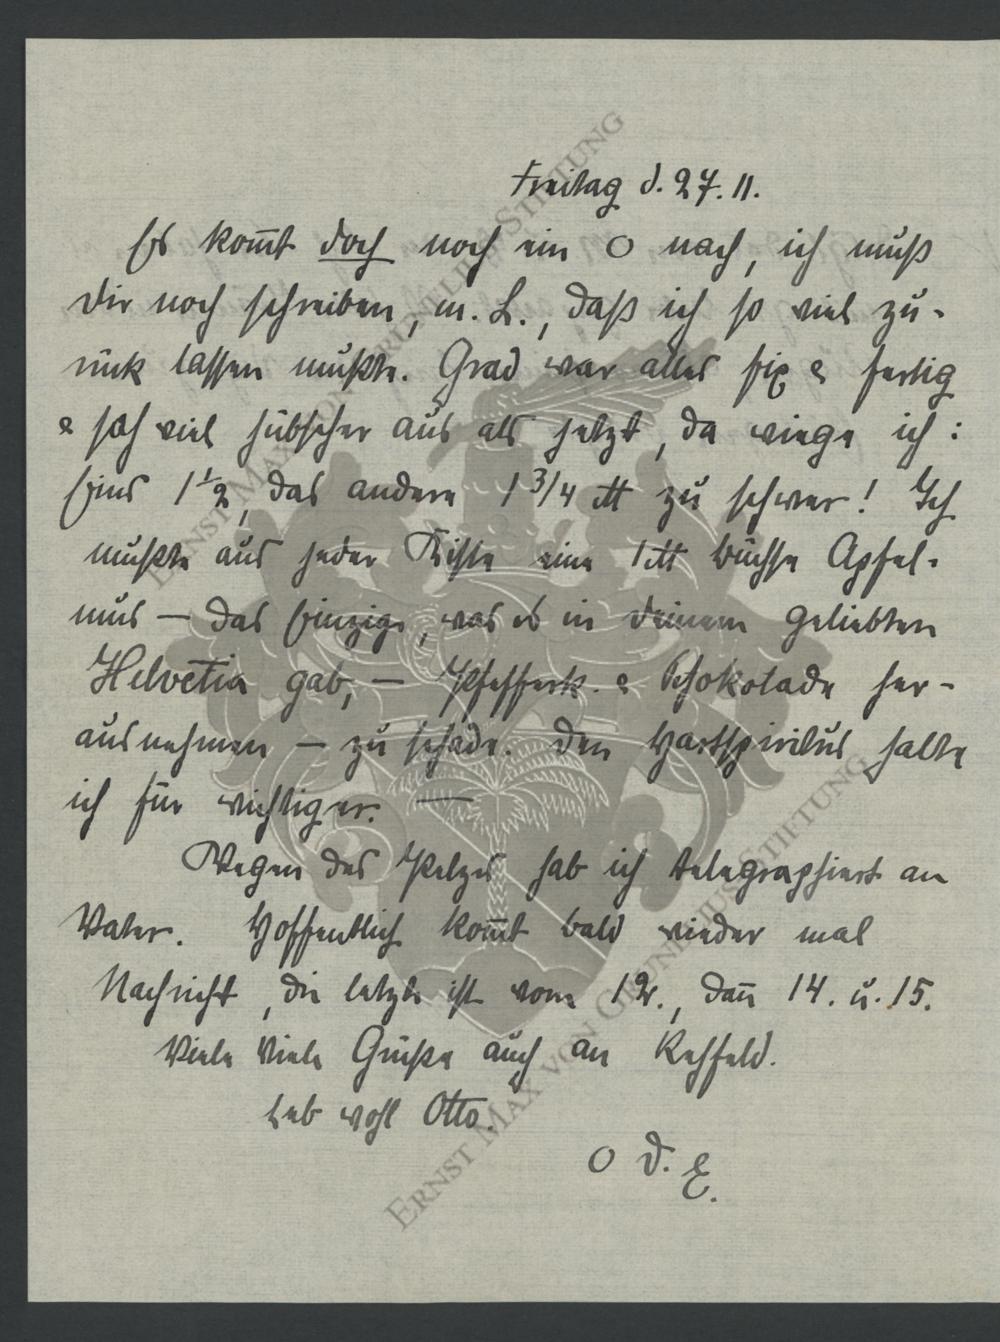 Freitag d. 27.11.
Es kom̄t doch noch ein O nach, ich muß
Dir noch schreiben, m. L., daß ich so viel zu-
rück lassen mußte. Grad war alles fix & fertig
& sah viel hübscher aus als jetzt, da wiege ich:
Eins 1½, das andere 1 3/4 ℔ zu schwer! Ich
mußte aus jeder Kiste eine 1 ℔ Büchse Apfel-
mus — das Einzige, was es in Deinem geliebten
Helvetia gab, — Pfefferk. & Schokolade her-
ausnehmen — zu schade. Den Hartspiritus halte
ich für wichtiger. —
Wegen des Pelzes hab ich telegraphiert an
Vater. Hoffentlich kom̄t bald wieder mal
Nachricht, die letzte ist vom 12., dan̄ 14. u. 15.
Viele Viele Grüße auch an Rehfeld.
Leb wohl Otto.
O D. E.
ERNST MAX VON GRUNELIUS STIFTUNG
ERNST MAX VON GRUNELIUS STIFTUNG